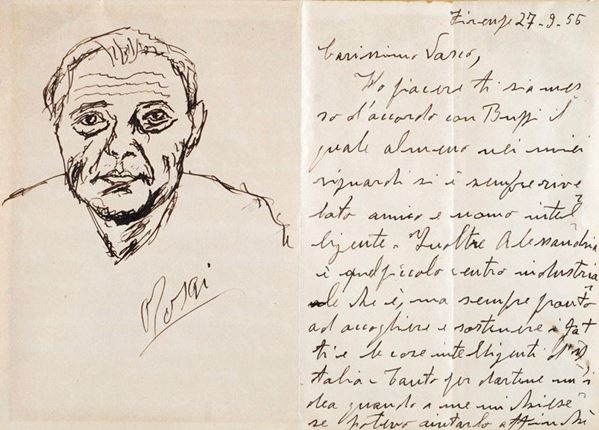 Rosai
Firenze 27-9-55
Carissimo Vasco,
Ho piacere ti sia mes
so d'accordo con Buzzi il
quale almeno nei miei
riguardi si è sempre rive
lato amico e uomo intel
ligente. Inoltre Alessandria
è quel piccolo centro industria
le che è, ma sempre pronto
ad accogliere e sostenere i fat
ti e le cose intelligenti d'I
talia. Tanto per dartene un'i
dea quando a me mi chiese
se potevo aiutarlo affinchè